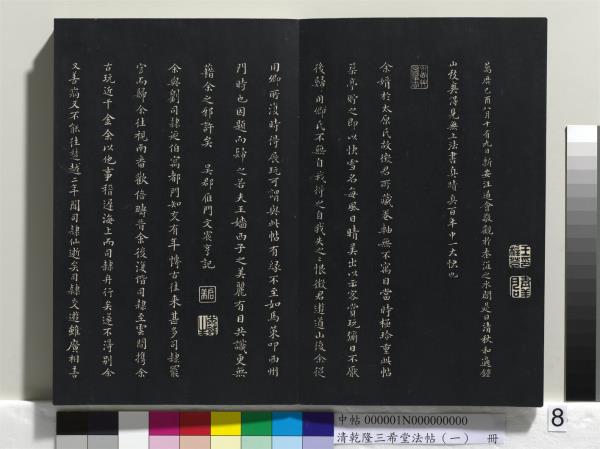 萬曆己酉八月十有九日新安汪道會敬觀於秦淮之水閣是日清秋和適鐘
山致爽得見無上法書真晴喜百年中一大快也
余婿於太原氏故徵君所藏卷軸無不寓目當時極珍重此帖
築亭貯之即以快雪名每風日晴美出以示客賞玩彌日不厭
後歸用卿氏不無自我得之自我失之之恨徵君遊道山後余從
用卿所復時得展玩可謂與此帖有緣不至如馬策叩西州
門時也因題而歸之若夫王嬙西子之美麗有目共識更無
藉余之邪許矣 吳郡雁門文震亨記
余與劉司隸延伯寓都門知交有年博古往來甚多司隸罷
官而歸余往視而番歡倍疇昔余後復偕司隸至雲間攜余
古玩近千金余以他事稽遲海上而司隸舟行矣遂不得別余
又善病又不能往楚越二年聞司隸仙逝矣司隸交遊雖廣相善
中帖 000001N000000000
清乾隆三希堂法帖(一) 冊
8